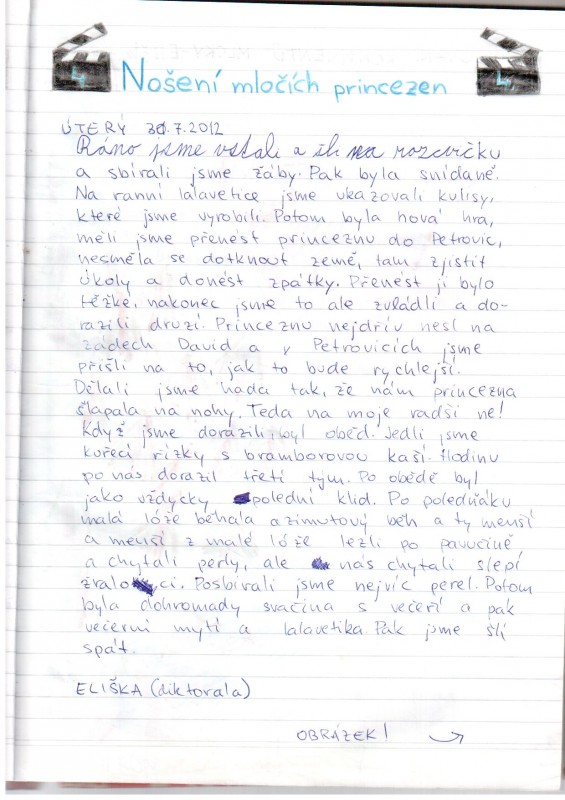 4 4
Nošení mločích princezen
ÚTERÝ 30.7.2012
Ráno jsme vstali a šli na rozcvičku
a sbírali jsme žáby. Pak byla snídaně.
Na ranní lalavetice jsme ukazovali kulisy,
které jsme vyrobili. Potom byla nová hra,
měli jsme přenést princeznu do Petrovic,
nesměla se dotknout země, tam zjistit
úkoly a donést zpátky. Přenést ji bylo
těžké, nakonec jsme to ale zvládli a do-
razili druzí. Princeznu nejdřív nesl na
zádech David a v Petrovicích jsme
přišli na to, jak to bude rychlejší.
Dělali jsme hada tak, že nám princezna
šlapala na nohy. Teda na moje radši ne!
Když jsme dorazili, byl oběd. Jedli jsme
kuřecí řízky s bramborovou kaší. Hodinu
po nás dorazil třetí tým. Po obědě byl
jako vždycky polední klid. Po poledňáku
malá lóže běhala azimutový běh a ty menší
a menší z malé lóže lezli po pavučině
a chytali perly, ale nás chytali slepí
žraloci. Posbírali jsme nejvíc perel. Potom
byla dohromady svačina s večeří a pak
večerní mytí a lalavetika. Pak jsme šli
spát.
ELIŠKA (diktovala)
OBRÁZEK!